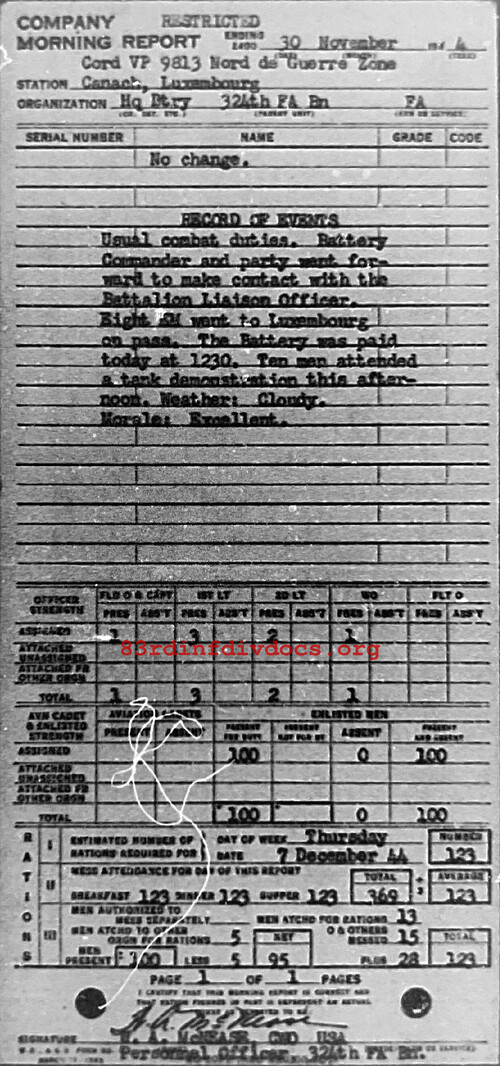 COMPANY RESTRICTED
MORNING REPORT ENDING 2400 30 November 194 4
Cord VP 9813 Nord de Guerre Zone
STATION Canach, Luxembourg
ORGANIZATION Hq Btry 324th FA Bn FA
SERIAL NUMBER NAME GRADE CODE
No change.
RECORD OF EVENTS
Usual combat duties. Battery
Commander and party went for-
ward to make contact with the
Battalion Liaison Officer.
Eight EM went to Luxembourg
on pass. The Battery was paid
today at 1230. Ten men attended
a tank demonstration this after-
noon. Weather: Cloudy.
Morale: Excellent.
OFFICER STRENGTH FLD O & CAPT 1ST LT 2D LT WO FLT O
PRES ABS'T PRES ABS'T PRES ABS'T PRES ABS'T PRES ABS'T
ASSIGNED 1 3 2 1
83rdinfdivdocs.org
ATTACHED UNASSIGNED
ATTACHED FR OTHER ORGN
TOTAL 1 3 2 1
AVN CADET & ENLISTED STRENGTH ENLISTED MEN
PRESENT FOR DUTY PRESENT NOT FOR DU ABSENT PRESENT AND ABSENT
ASSIGNED 100 0 100
ATTACHED UNASSIGNED
ATTACHED FR OTHER ORGN
TOTAL 100 0 100
RATIONS
I ESTIMATED NUMBER OF RATIONS REQUIRED FOR DAY OF WEEK Thursday NUMBER
DATE 7 December 44 123
II MESS ATTENDANCE FOR DAY OF THIS REPORT TOTAL AVERAGE
BREAKFAST 123 DINNER 123 SUPPER 123 369 ÷ 3 123
III MEN AUTHORIZED TO MESS SEPARATELY MEN ATCHD FOR RATIONS 13
MEN ATCHD TO OTHER ORGN FOR RATIONS 5 NET O & OTHERS MESSED 15 TOTAL
MEN PRESENT 100 LESS 5 95 PLUS 28 123
PAGE 1 OF 1 PAGES
I CERTIFY THAT THIS MORNING REPORT IS CORRECT AND
THAT RATION FIGURES IN PART III REPRESENT AN ACTUAL
SIGNATURE W. A. McNEASE, CWO USA
Personnel Officer, 324th FA Bn.